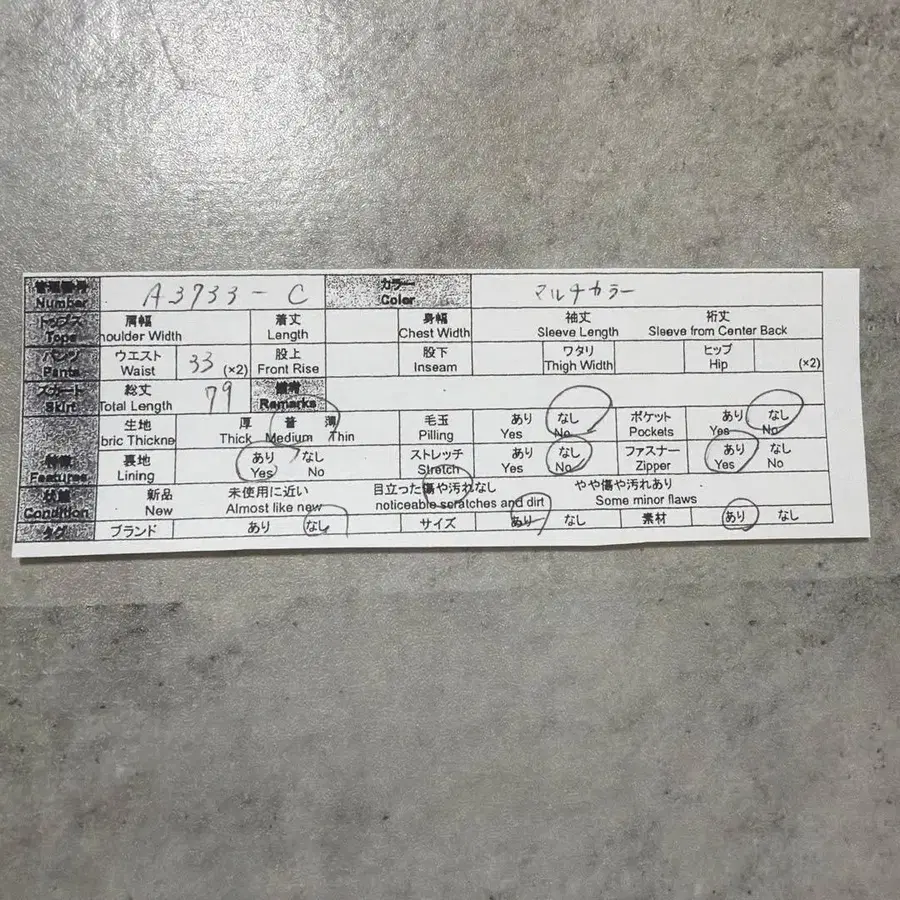 管理番号 カラー
Number A3733-C Color マルチカラー
トップス 肩幅 着丈 身幅 袖丈 裄丈
Tops houlder Width Length Chest Width Sleeve Length Sleeve from Center Back
パンツ ウエスト 33 股上 股下 ワタリ ヒップ
Pants Waist (×2) Front Rise Inseam Thigh Width Hip (×2)
スカート 総丈 79 備考
Skirt Total Length Remarks
生地 厚 普 薄 毛玉 あり なし ポケット あり なし
bric Thickne Thick Medium Thin Pilling Yes No Pockets Yes No
特徴 裏地 あり なし ストレッチ あり なし ファスナー あり なし
Features Lining Yes No Stretch Yes No Zipper Yes No
状態 新品 未使用に近い 目立った傷や汚れなし やや傷や汚れあり
Condition New Almost like new noticeable scratches and dirt Some minor flaws
タグ ブランド あり なし サイズ あり なし 素材 あり なし